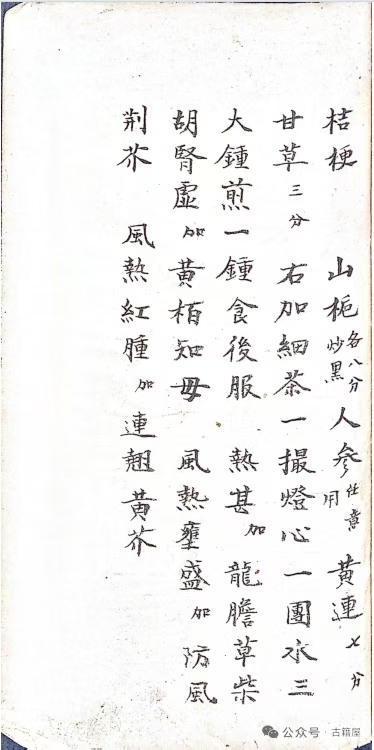 桔梗 山梔各八分炒黑人參任意用黃連七分
甘草三分 右加細茶一撮燈心一團水三
大鍾煎一鍾食後服 熱甚加龍膽草柴
胡腎虛加黃栢知毋 風熱壅盛加防風
荆芥 風熱紅腫加連翹黃芥
公众号 · 古籍屋